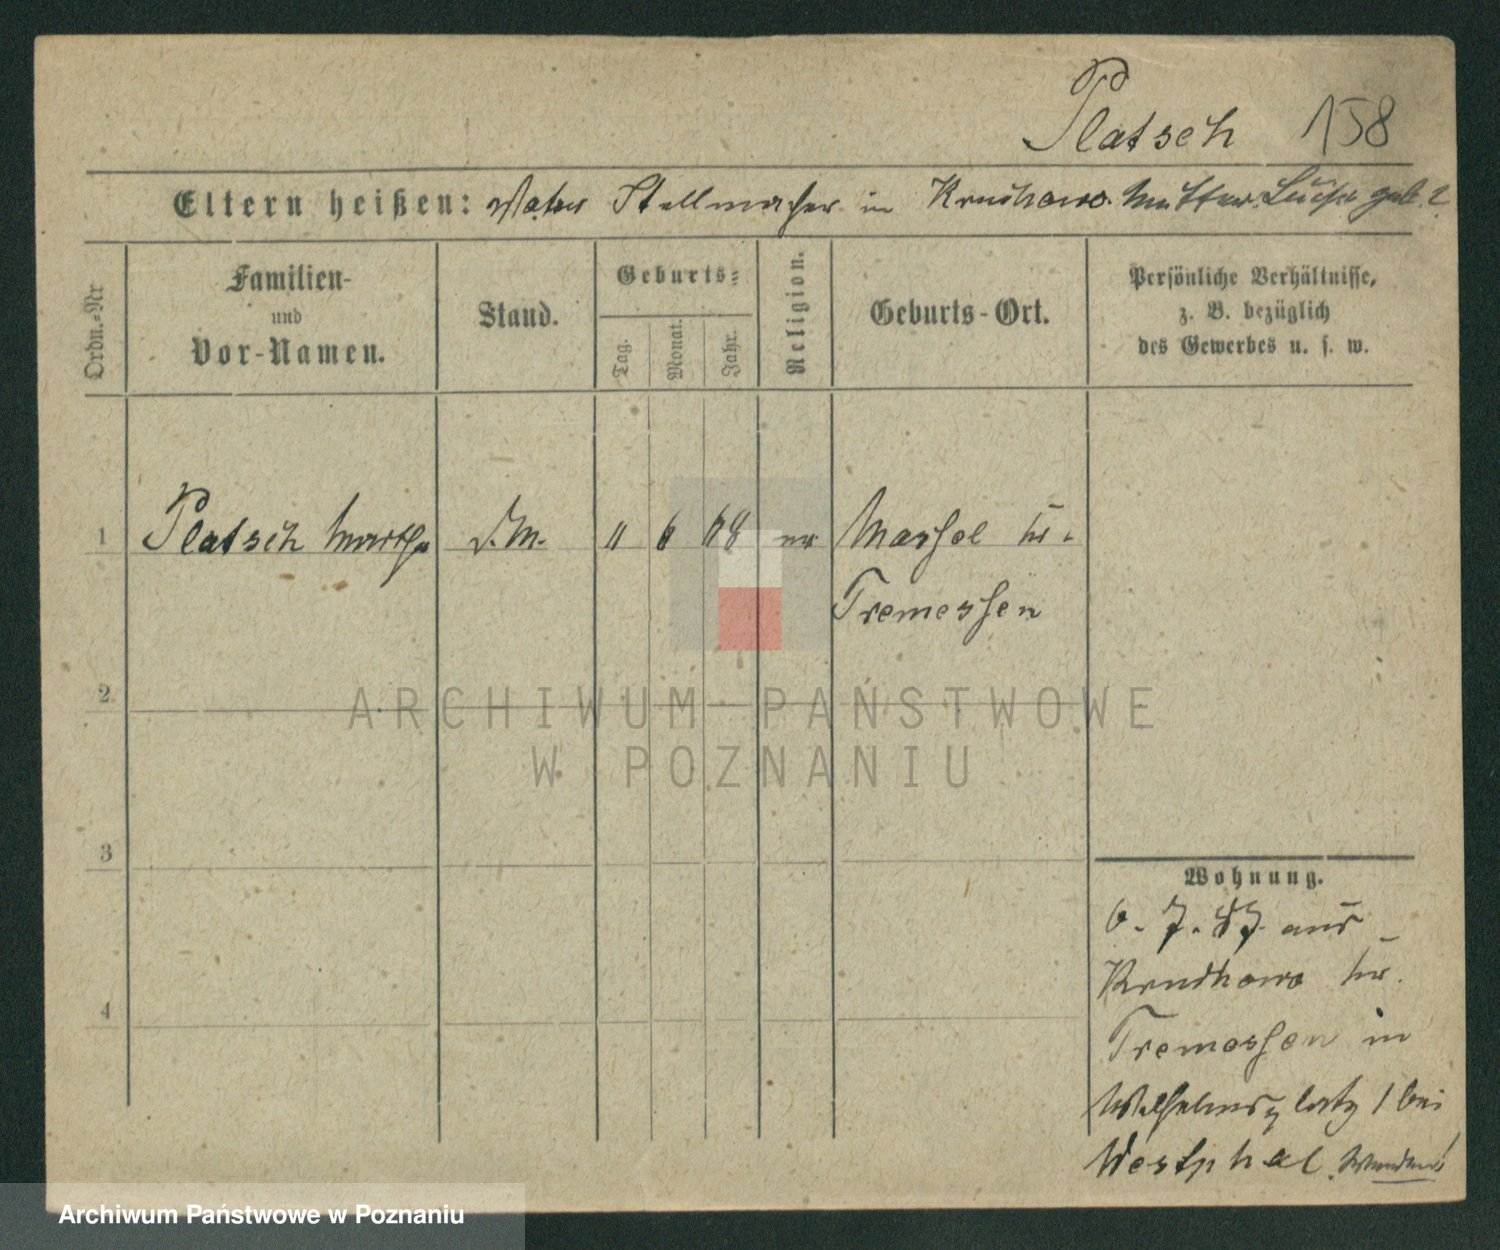 Platsch 158
Eltern heißen: Vater Stellmacher in Kruchowo. Mutter: Luise geb. ?
Ordn.-Nr
Familien-
und
Vor-Namen.
Stand.
Geburts-
Tag.
Monat.
Jahr.
Religion.
Geburts-Ort.
Persönliche Verhältnisse,
z. B. bezüglich
des Gewerbes u. s. w.
1 Platsch Martha D. M. 11 6 68 ev
Tremessen
2
3
4
Wohnung.
6. 7. 87 aus
Kruchowo Kr.
Tremessen in
Wilhelmsplatz 1 bei
Westphal.
ARCHIWUM PAŃSTWOWE
W POZNANIU
Archiwum Państwowe w Poznaniu